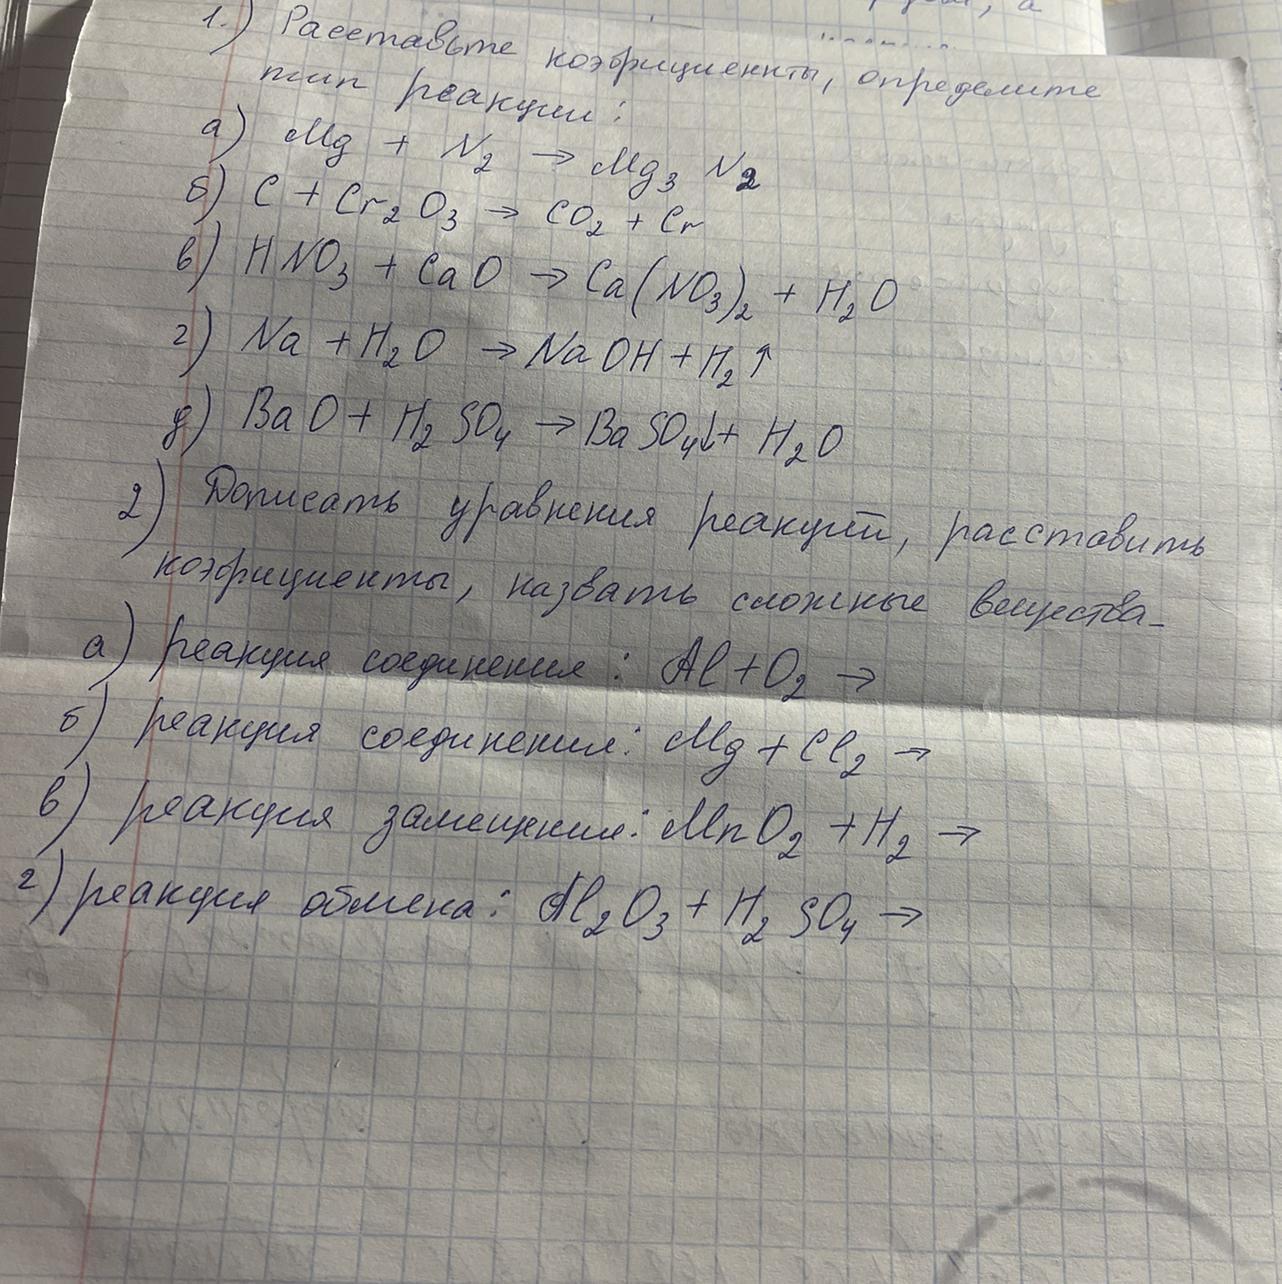 1.) Расставьте коэфициенты, определите
тип реакции:
а) Mg + N₂ → Mg₃ N₂
б) C + Cr₂ O₃ → CO₂ + Cr
в) HNO₃ + CaO → Ca(NO₃)₂ + H₂O
г) Na + H₂O → NaOH + H₂↑
д) BaO + H₂SO₄ → BaSO₄↓ + H₂O
2) Дописать уравнения реакций, расставить
коэфициенты, назвать сложные вещества.
а) реакция соединения: Al + O₂ →
б) реакция соединения: Mg + Cl₂ →
в) реакция замещения: MnO₂ + H₂ →
г) реакция обмена: Al₂O₃ + H₂SO₄ →